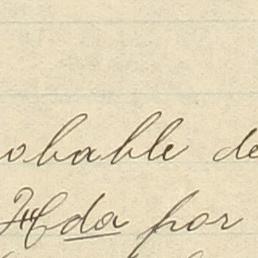 obable de
Hda por